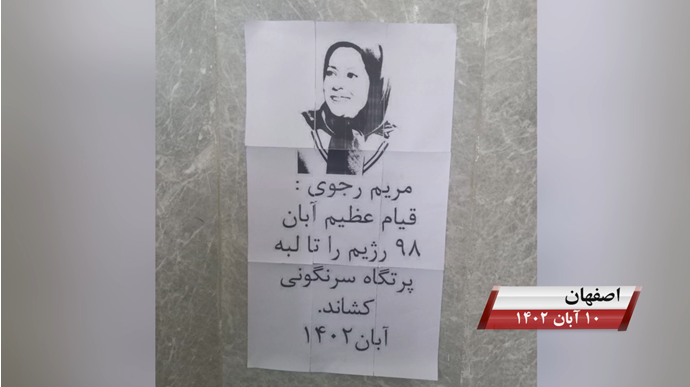 مریم رجوی :
قیام عظیم آبان
۹۸ رژیم را تا لبه
پرتگاه سرنگونی
کشاند.
آبان۱۴۰۲
اصفهان
۱۰ آبان ۱۴۰۲